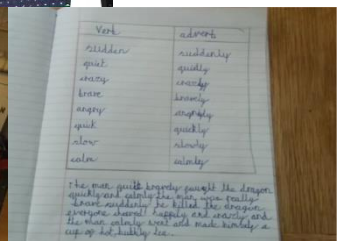 Verb adverb
sudden suddenly
quiet quietly
crazy
brave bravely
angry
quick quickly
slow slowly
calm calmly
The man bravely fought the dragon
quickly and calmly the man was really
brave suddenly he killed the dragon
everyone cheered happily and crazily and
the man calmly went and made himself a
cup of hot bubbly tea.